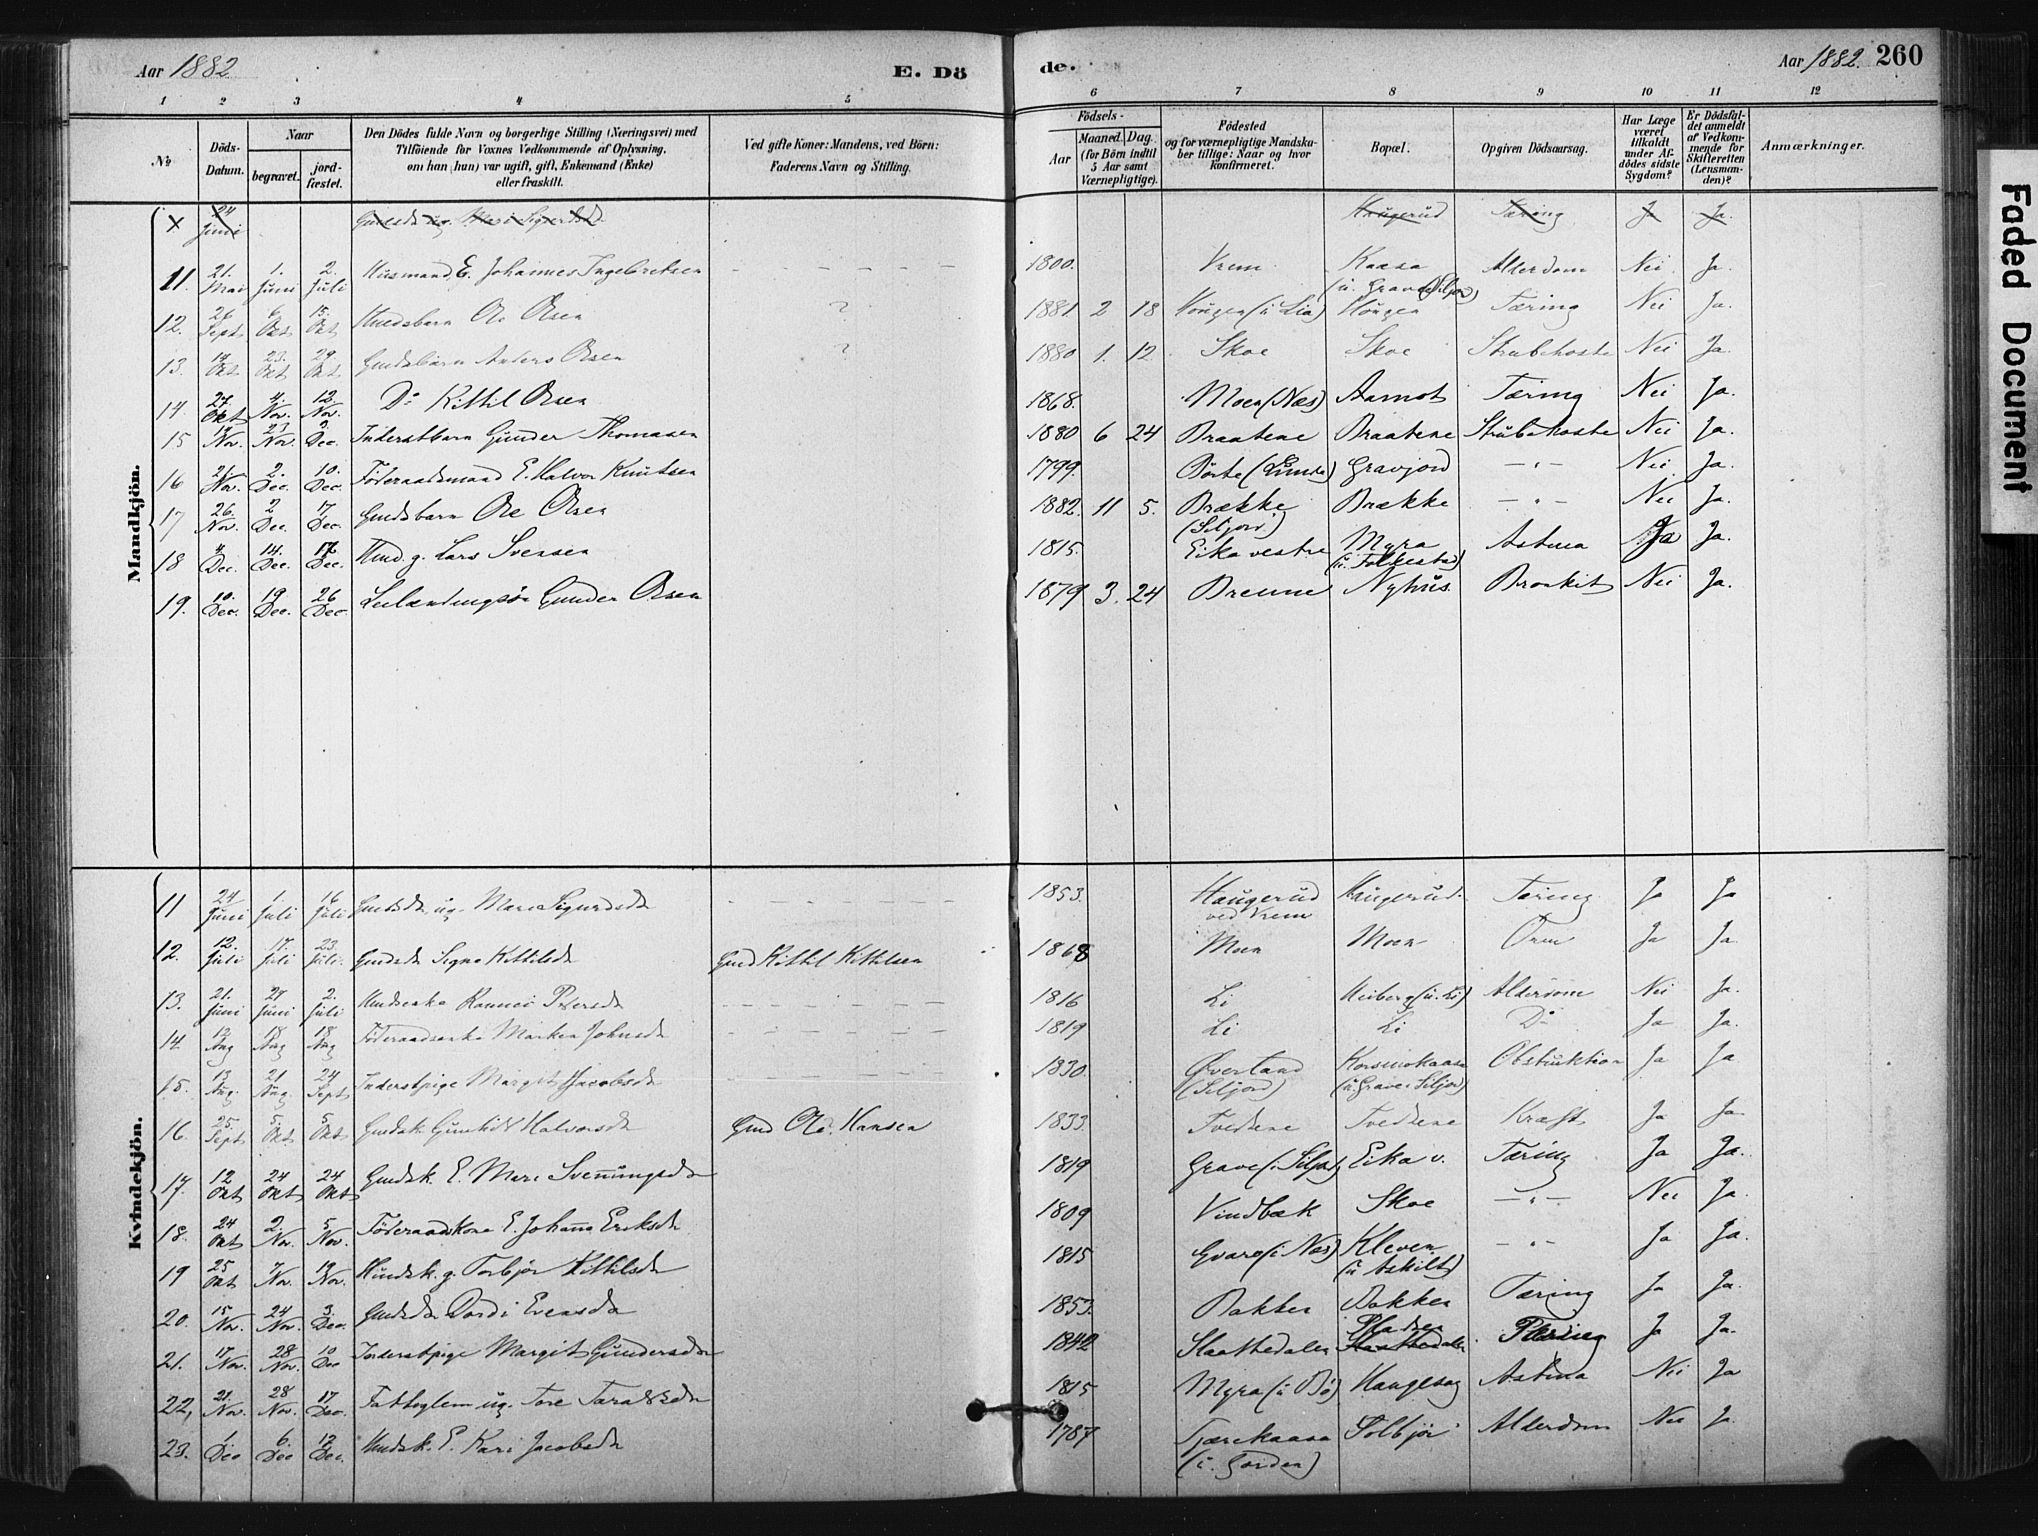 Aar 1882 E. Dö de. Aar 1882. 260
1 2 3 4 5 6 7 8 9 10 11 12
No Döds-Datum. Naar begravet. jordfæstet. Den Dödes fulde Navn og borgerlige Stilling (Næringsvei) med Tilföiende for Voxnes Vedkommende af Oplysning, om han (hun) var ugift, gift, Enkemand (Enke) eller fraskilt. Ved gifte Koner: Mandens, ved Börn: Faderens Navn og Stilling. Födsels- Aar Maaned. Dag. (for Börn indtil 5 Aar samt Værnepligtige). Födested og for værnepligtige Mandskaber tillige: Naar og hvor konfirmeret. Bopæl. Opgiven Dödsaarsag. Har Læge været tilkaldt under Afdödes sidste Sygdom? Er Dödsfaldet anmeldt af Vedkommende for Skifteretten (Lensmanden)? Anmærkninger.
Mandkjön.
24 Juni Gmdsdr ug. Mari Sigurdsd. Haugerud Tæring Ja Ja.
11. 21. Mai 1. Juni 2. Juli Husmand E. Johannes Ingebretsen 1800. Vrem Kaasa (u. Grave Siljord) Alderdom Nei Ja.
12. 26 Sept 6 Okt 15. Okt Hmdsbarn Ole Olsen ? 1881 2 18 Haugen (u Lia) Haugen Tæring Nei Ja.
13. 14 Okt 23. Okt 29. Okt Gmdsbarn Anders Olsen ? 1880 1. 12 Skoe Skoe Strubehoste Nei Ja.
14 27. Okt 4. Nov. 12. Nov. Do Kittil Olsen 1868. Moen (Næs) Aamot Tæring Nei Ja.
15 Nov. 23 Nov. 3. Dec. Inderstbarn Gunder Thomasen 1880 6 24 Braatene Braatene Strubehoste Nei Ja.
16 21. Nov. 2. Dec. 10. Dec. Föderaadsmand E. Halvor Knutsen 1799. Börte (Lunde) Gravjord —"— Nei Ja.
17 26. Nov. 2 Dec. 17 Dec. Gmdsbarn Ole Olsen 1882. 11 5. Brække (Siljord) Brække —"— Nei Ja.
18 4 Dec. 14. Dec. 17 Dec. Hmd. g. Lars Svensen 1815. Eika vestre Myra (u. Folkestad) Astma Ja Ja.
19. 10. Dec. 19 Dec. 26 Dec. Leilændingsön Gunder Olsen 1879 3. 24 Brenne Nyhus. Bronkit Nei Ja.
Kvindekjön.
11 24 Juni 1 Juli 16 Juli Gmdsdr ug. Mari Sigurdsdr 1853. Haugerud ved Vrem Haugerud. Tæring Ja Ja
12. 12. Juli 17. Juli 23. Juli. Gmdsdr Signe Kittilsdr Gmd Kittil Kittilsen 1868 Moen Moen Ja Ja
13. 21. Juni 27 Juni 2. Juli Hmdsenke Rannei Petersdr 1816 Li Heiberg (u. Li) Alderdom Nei Ja.
14 12 Aug 18 Aug 18 Aug Föderaadsenke Marken Johnsdr 1819 Li Li Do Ja Ja.
15. 13 Aug. 21 Aug 24 Sept Inderstpige Margit Jacobsdr 1830. Överland (Siljord) Korsmokaasa (u. Grave i Siljord) Obstruktion Ja Ja
16. 25. Sept 5. Okt 5 Okt Gmdsk. Gunhild Halvorsdr Gmd Ole Hansen 1833. Tvedtene Tvedtene Kræft Ja Ja
17. 12 Okt 24 Okt 24 Okt Gmdsk. E. Mari Svenningsdr 1819 Grave (i Siljord) Eika v. Tæring Ja Ja.
18. 24 Okt 2. Nov. 5 Nov. Föderaadskone E. Johanne Eriksdr 1809 Vindbæk Skoe —"— Nei Ja
19 25 Okt 7 Nov. 19 Nov. Hmdsk. g. Torbjör Kittilsdr 1815 Gvare (i Næs) Kleven (u Askilt) —"— Ja Ja.
20. 15 Nov. 24 Nov. 3. Dec. Gmdsdr Dordi Evensdr 1853. Bakken Bakken Tæring Ja Ja.
21. 17 Nov. 28 Nov. 10 Dec Inderstpige Margit Gundersdr 1842 Slaattedalen Slaattedalen Ja Ja.
22, 21. Nov. 28 Nov. 17 Dec. Fattiglem ug. Tore Taraldsdr 1815 Myra (u Bö) Haugesag Astma Nei Ja
23. 1 Dec 6 Dec 12 Dec. Hmdsk. E. Kari Jacobsdr 1787 Tjærekaasa (u. Gorden) Solbjör Alderdom Nei Ja
Faded Document